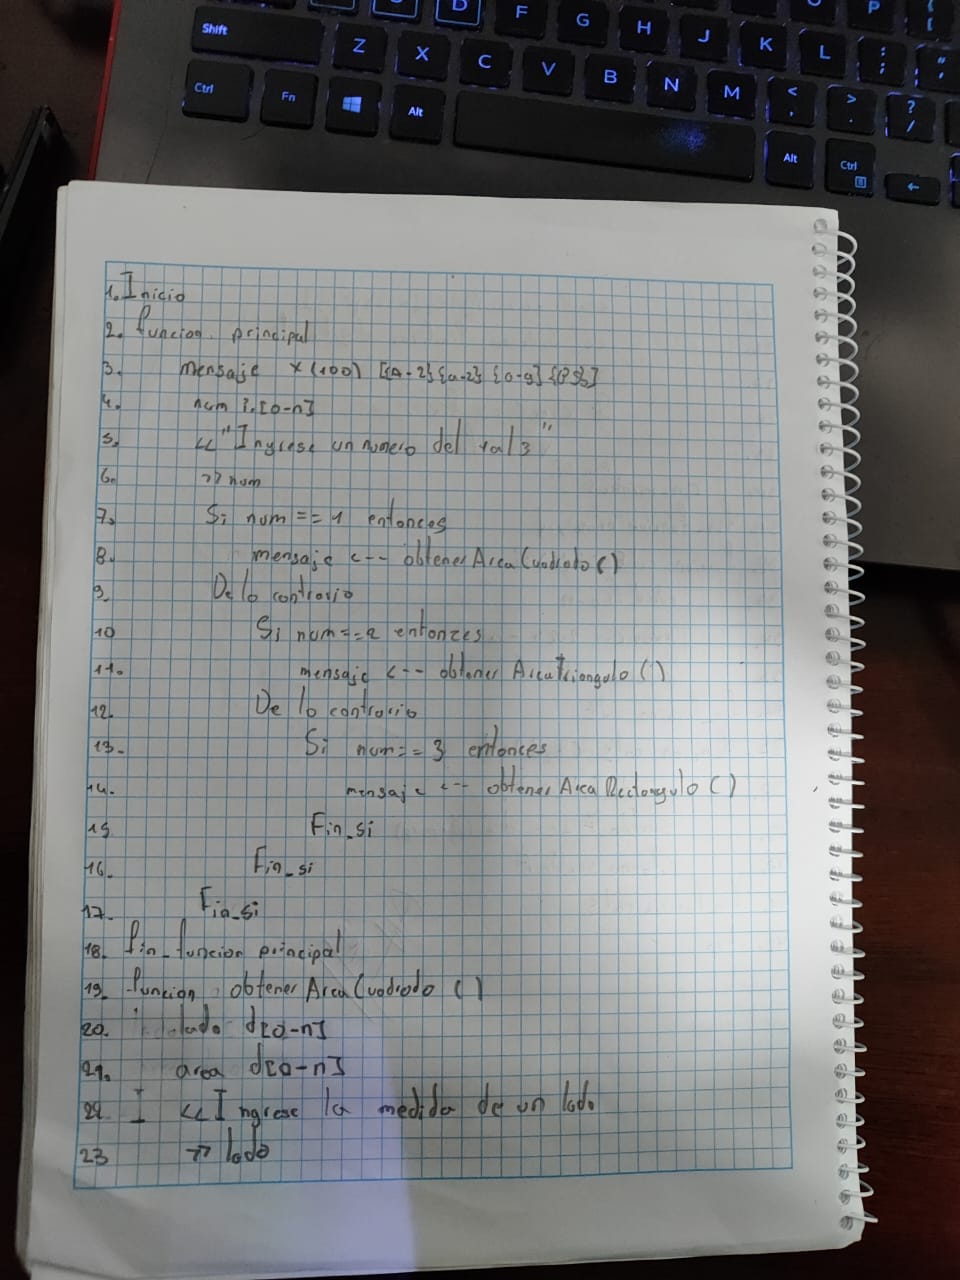 Shift Z X C V B N M < , > . ? /
D F G H J K L : ; " ' P
Ctrl Fn Alt Alt Ctrl ←
1. Inicio
2. funcion principal
3. mensaje x(100) [{A-Z}{a-z}{0-9}{PS}]
4. num i[0-n]
5. << "Ingrese un numero del 1 al 3"
6. >> num
7. Si num == 1 entonces
8. mensaje <-- obtenerAreaCuadrado()
9. De lo contrario
10 Si num == 2 entonces
11. mensaje <-- obtenerAreaTriangulo()
12. De lo contrario
13. Si num == 3 entonces
14. mensaje <-- obtenerAreaRectangulo()
15 Fin_si
16. Fin_si
17. Fin_si
18. fin_funcion principal
19. funcion obtenerAreaCuadrado()
20. lado d[0-n]
21. area d[0-n]
22. << Ingrese la medida de un lado
23 >> lado